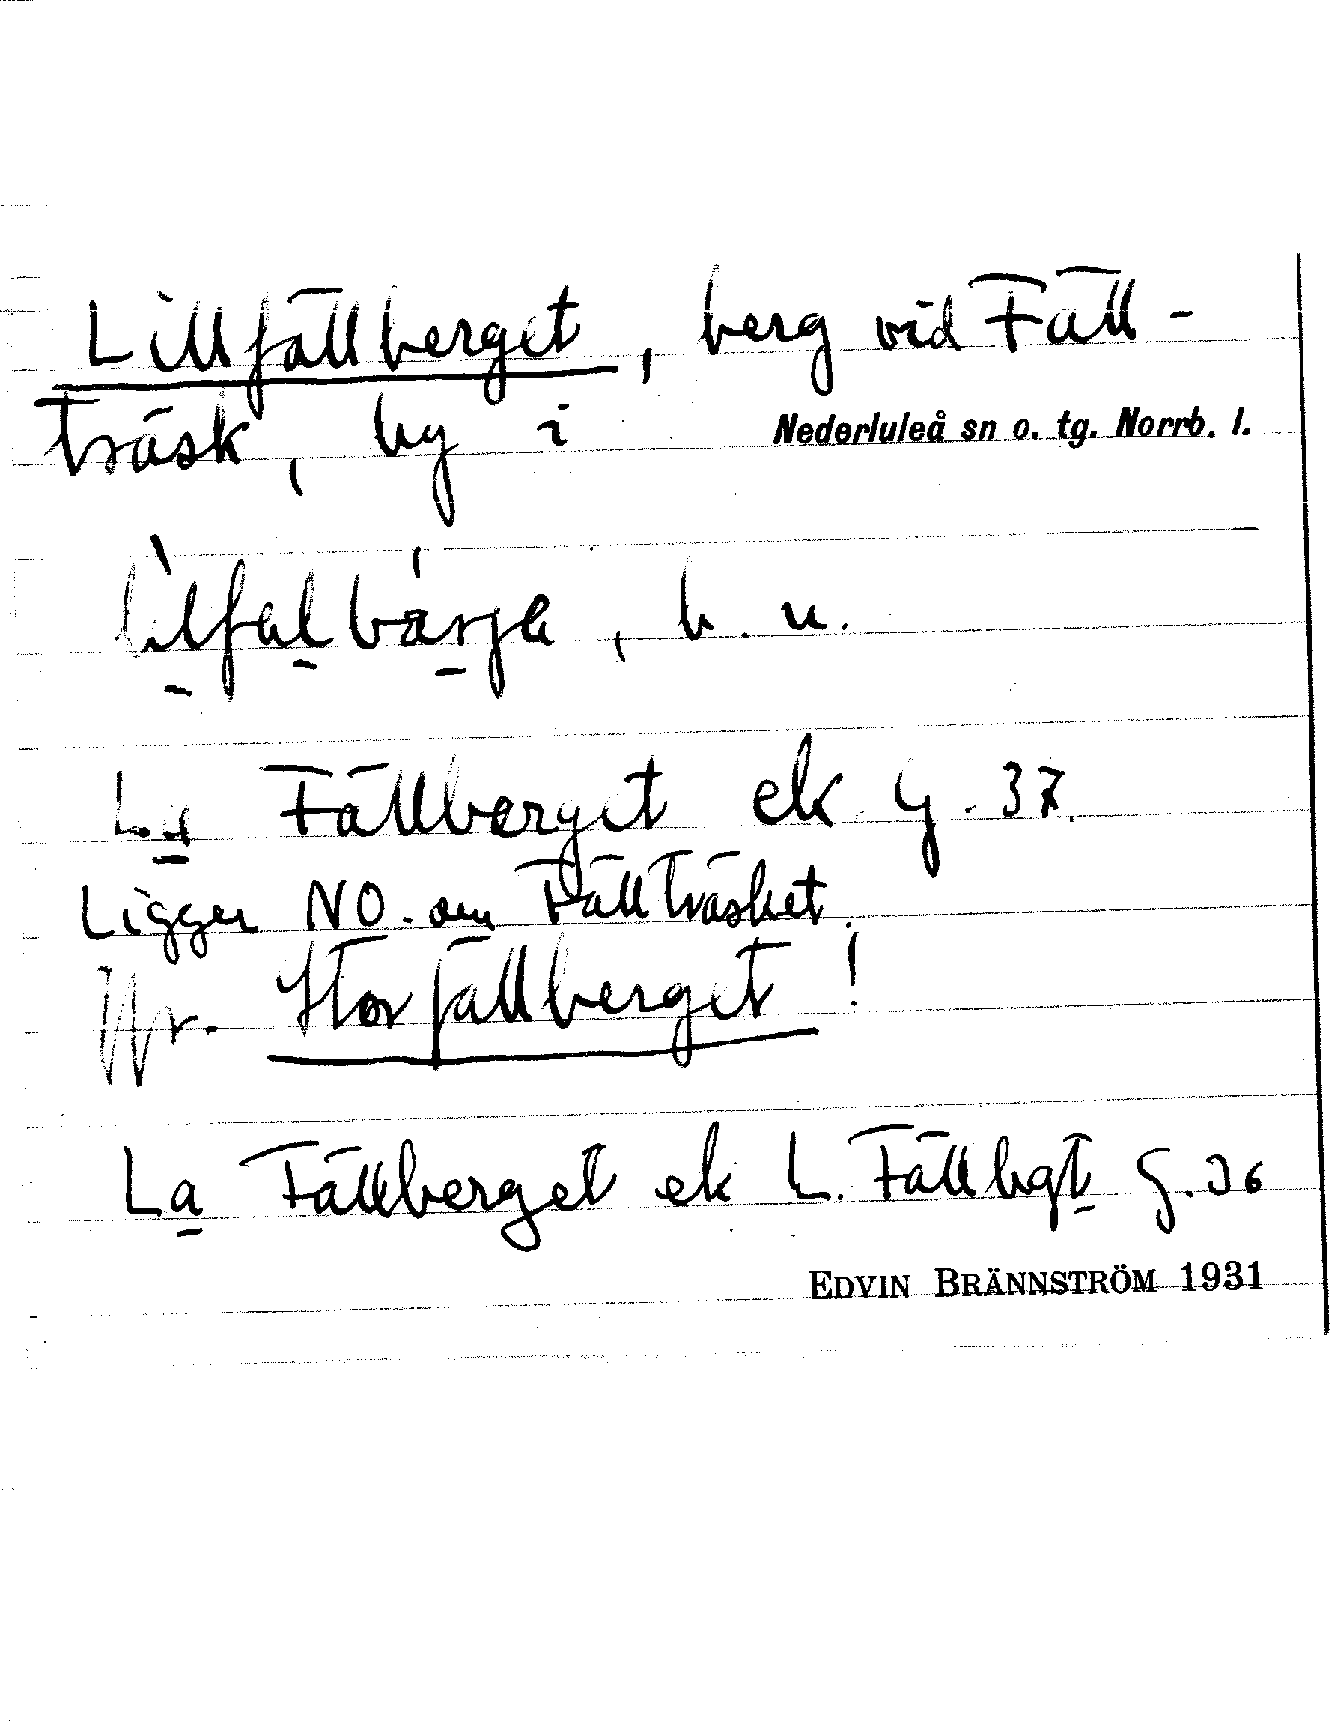 Lillfällberget, berg vid Fäll-
träsk, by i Nederluleå sn o. tg. Norrb. l.
lilfalbärja, b. u.
La Fällberget ek G. 37.
Ligger NO. om Fällträsket.
Jfr. Storfällberget!
La Fällberget ek L. Fällbgt G. 36
EDVIN BRÄNNSTRÖM 1931